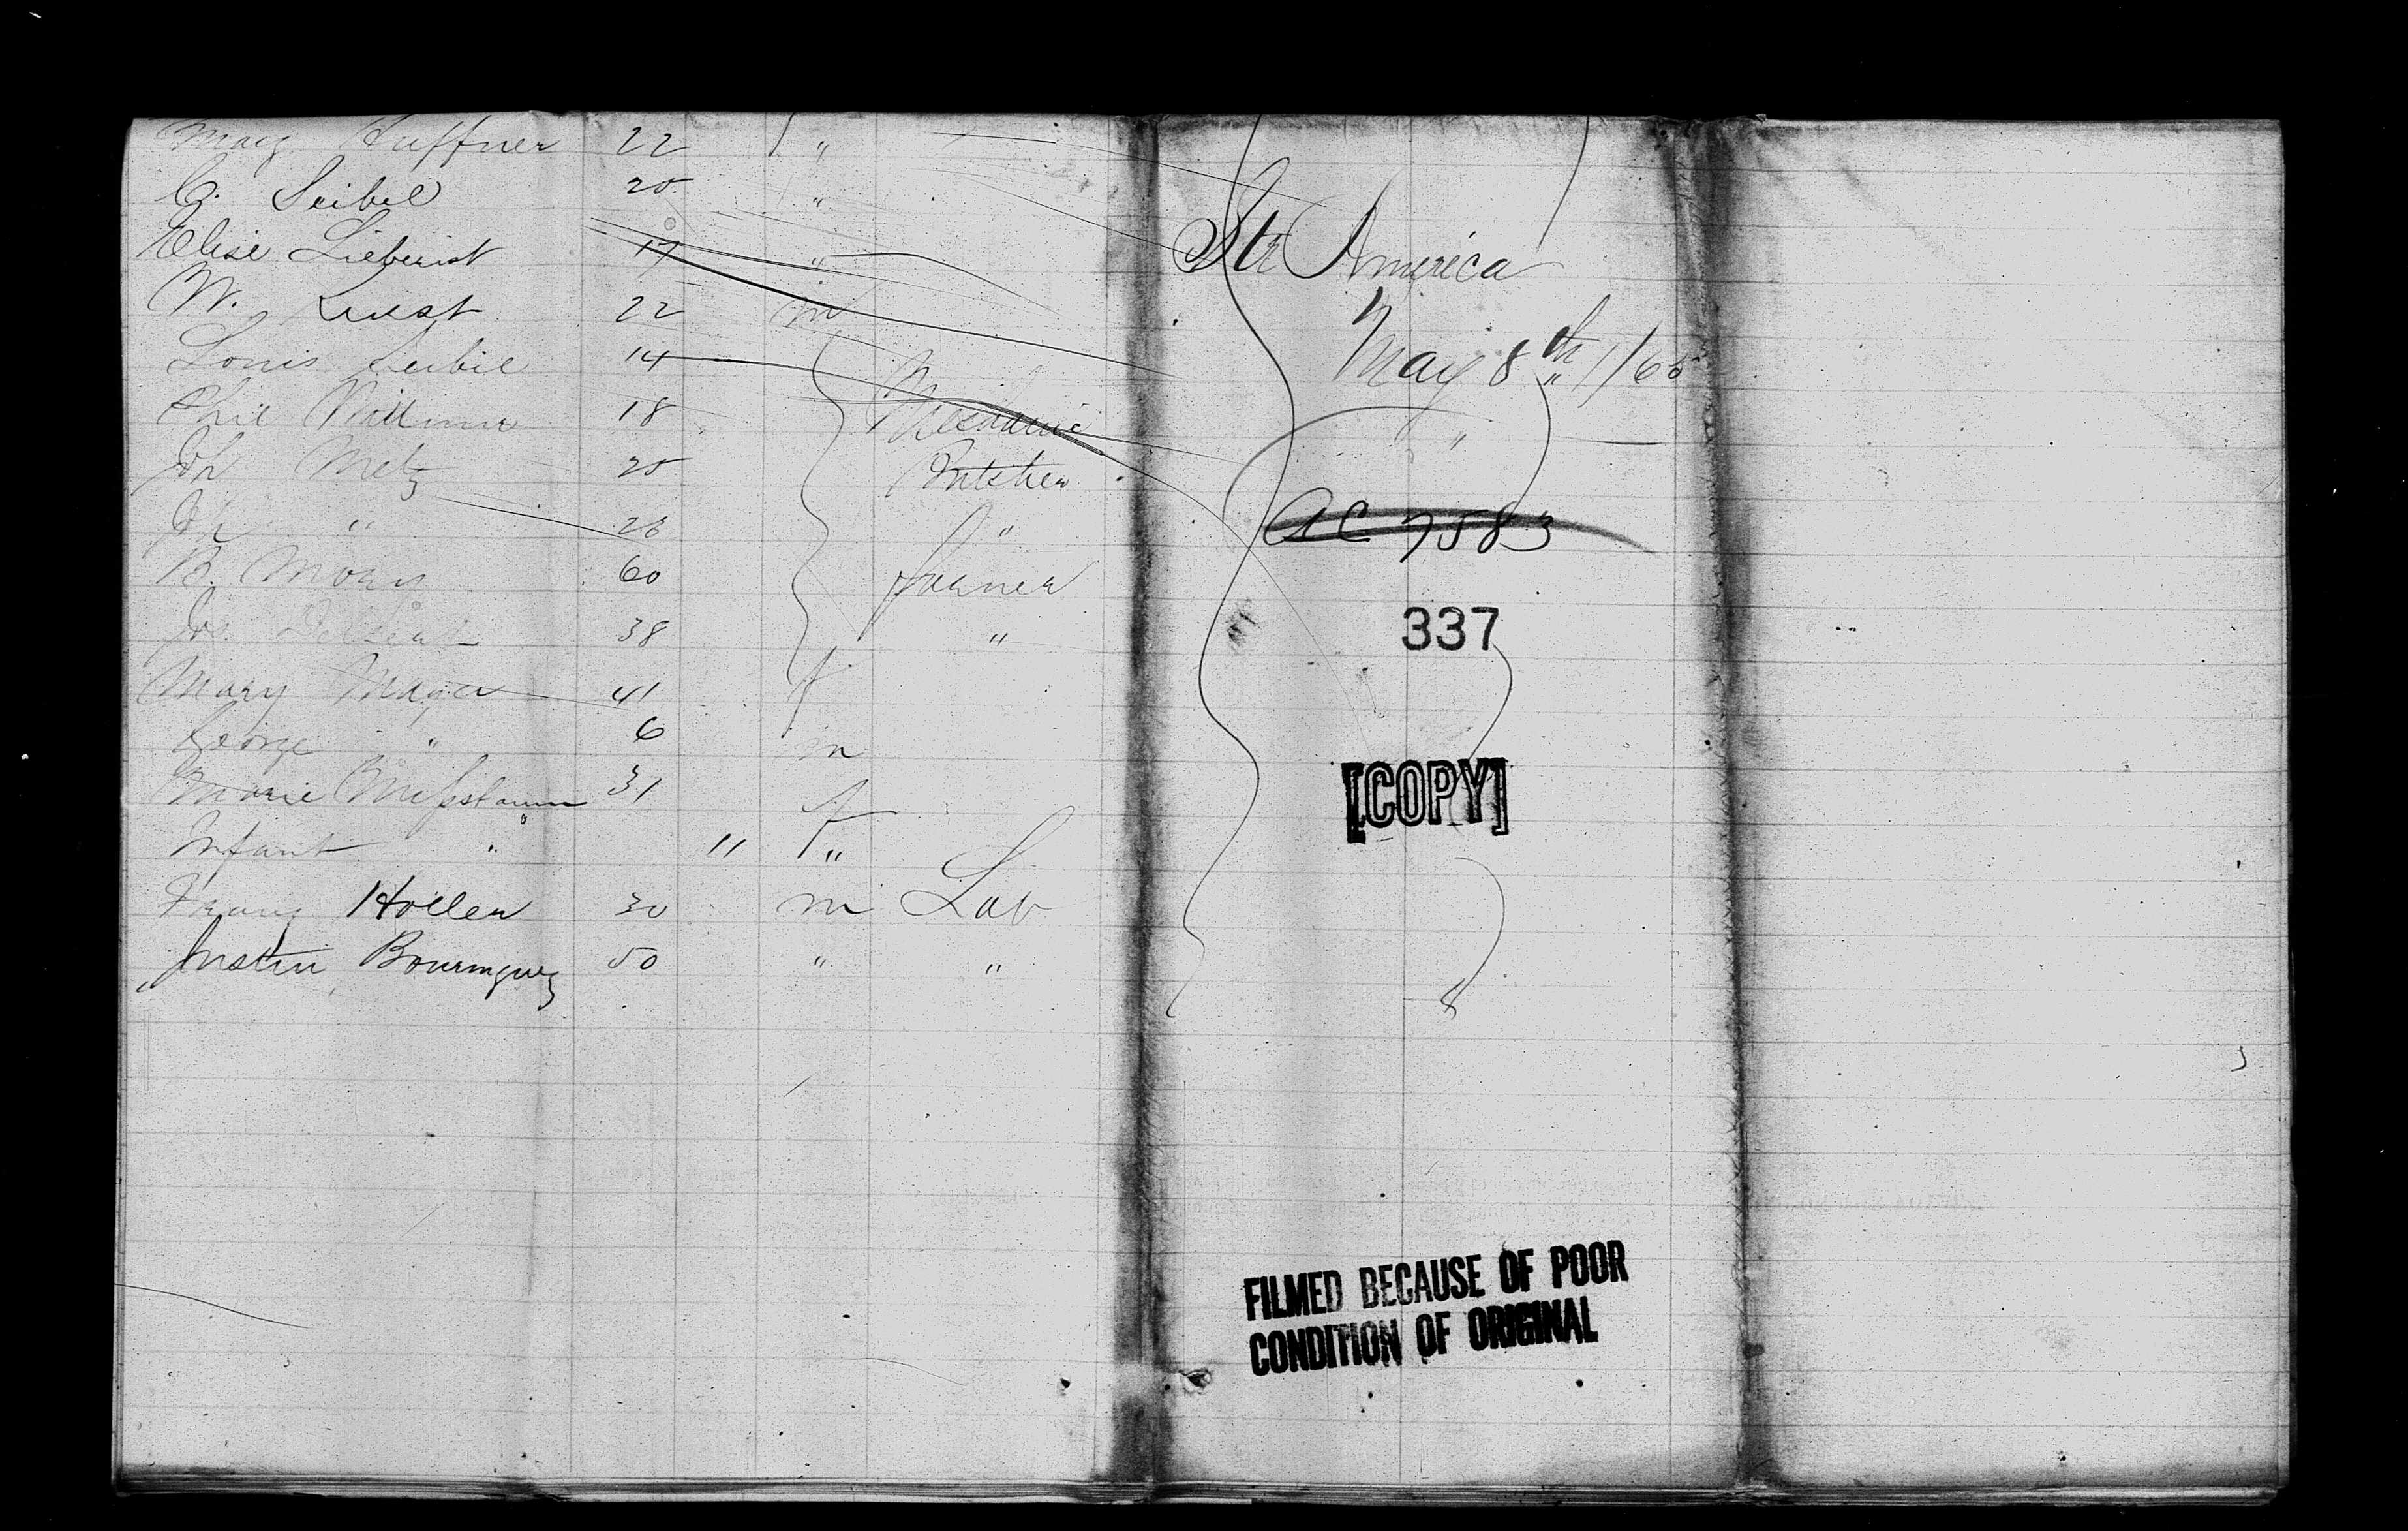 Mary Huffner 22 "
C. Seibel 20 "
Elise Lieberist 17 "
W. Kust 22 m
Louis Seibil 14
Phil 18 Mechanic
Jh Metz 20 Butcher
Jh " 26 "
B. Mory 60 Farmer
Jos. 38 "
Mary Mayer 41 f
George " 6 m
Marie 31 f
Infant " " "
Franz Holler 30 m Lab
Justin 50 " "
Str America
May 8th 1/65
"
AC 7583
337
[COPY]
FILMED BECAUSE OF POOR
CONDITION OF ORIGINAL